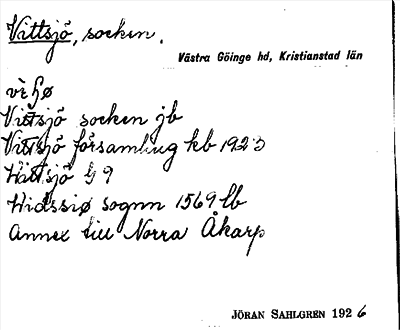 Vittsjö, socken.
Västra Göinge hd, Kristianstad län
Vittsjö socken jb
Vittsjö församling kb 1923
Wittsjö
Widssiø sognn 1569 lb
Annex till Norra Åkarp
JÖRAN SAHLGREN 1926